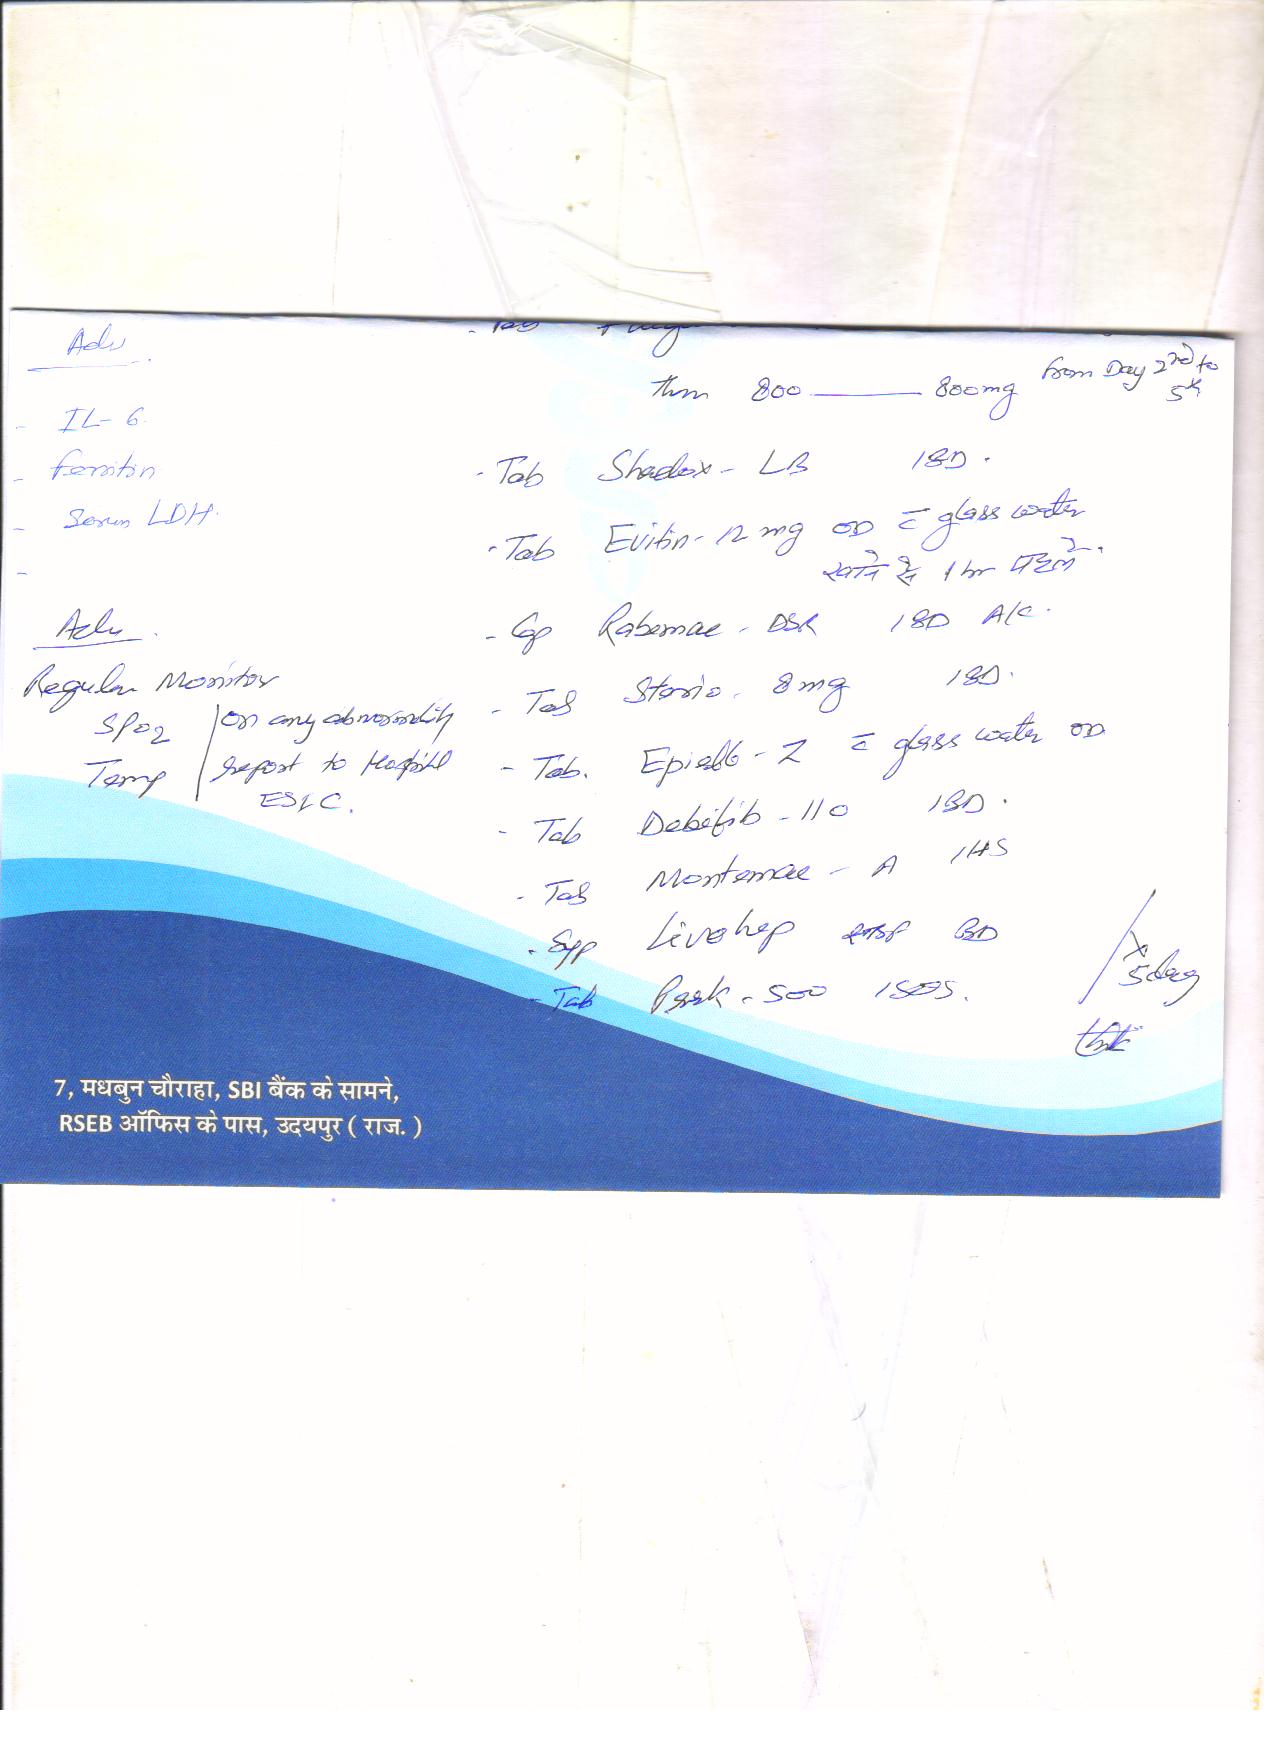 Adv
- IL-6
- Ferritin
- Serum LDH
-
Adv
Regular Monitor
SPO2
Temp
on any abnormality
report to Hospital
ESIC.
- Tab
then 800 — 800mg from Day 2nd to 5th
- Tab Shadox - LB 1BD.
- Tab Evitin - 12 mg OD c̄ glass water
खाने से 1 hr पहले
- Cap Rabemac - DSR 1BD A/C.
- Tab 8mg 1BD.
- Tab. - Z c̄ glass water OD
- Tab Debifib - 110 1BD.
- Tab Montemac - A 1HS
- Syp Livohep BD
- Tab - 500 1SOS.
x 5 day
7, मधुबन चौराहा, SBI बैंक के सामने,
RSEB ऑफिस के पास, उदयपुर ( राज. )